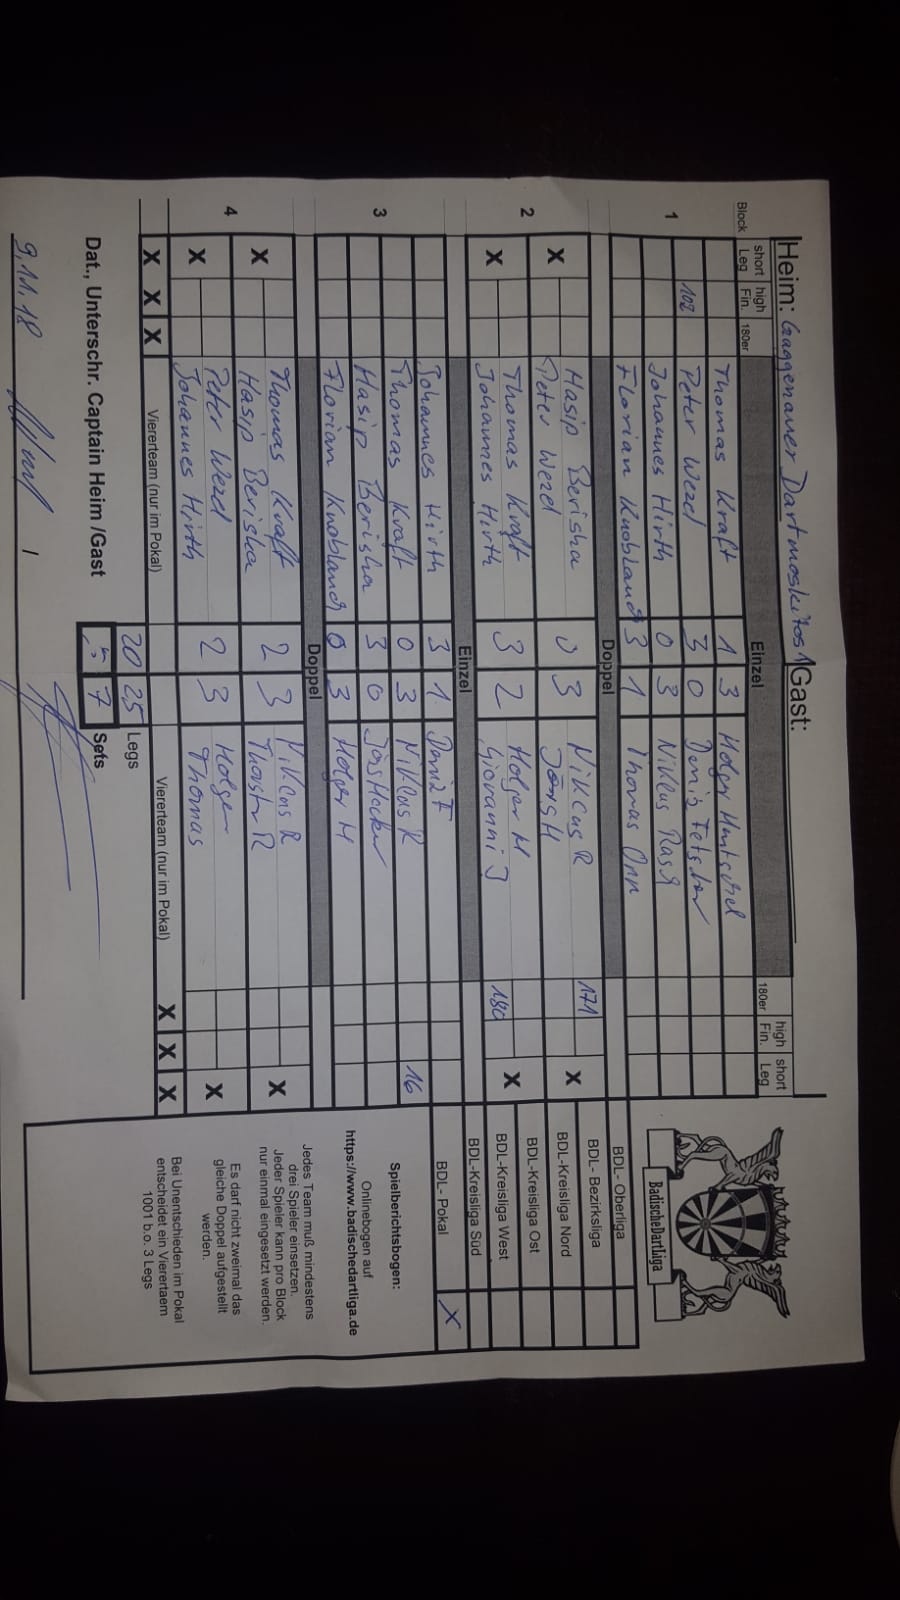 Heim: Gaggenauer Dartmoskitos 1 Gast:
Block short Leg high Fin. 180er Einzel 180er high Fin. short Leg
1
Thomas Kraft 1 3 Holger
102 Peter Wezel 3 0 Denis
Johannes Hirth 0 3 Niklas Rasg
Florian Knobland 3 1 Thomas Orn
Doppel
2
X Hasip Berisha 0 3 Niklas R 171 X
Peter Wezel Jörg H
X Thomas Kraft 3 2 Holger H X
Johannes Hirth Giovanni J 180
Einzel
3
Johannes Hirth 3 1 Deniz F
Thomas Kraft 0 3 Niklas R 16
Hasip Berisha 3 0 Jörg Hecker
Florian Knobland 0 3 Holger H
Doppel
4
X Thomas Kraft 2 3 Niklas R X
Hasip Berisha R
X Peter Wezel 2 3 Holger X
Johannes Hirth Thomas
X X X Viererteam (nur im Pokal) Viererteam (nur im Pokal) X X X
20 25 Legs
Dat., Unterschr. Captain Heim /Gast 5 7 Sets
9.11.18 /
BadischeDartLiga
BDL - Oberliga
BDL - Bezirksliga
BDL-Kreisliga Nord
BDL-Kreisliga Ost
BDL-Kreisliga West
BDL-Kreisliga Süd
BDL- Pokal X
Spielberichtsbogen:
Onlinebogen auf
https://www.badischedartliga.de
Jedes Team muß mindestens
drei Spieler einsetzen.
Jeder Spieler kann pro Block
nur einmal eingesetzt werden.
Es darf nicht zweimal das
gleiche Doppel aufgestellt
werden.
Bei Unentschieden im Pokal
entscheidet ein Vierertaem
1001 b.o. 3 Legs